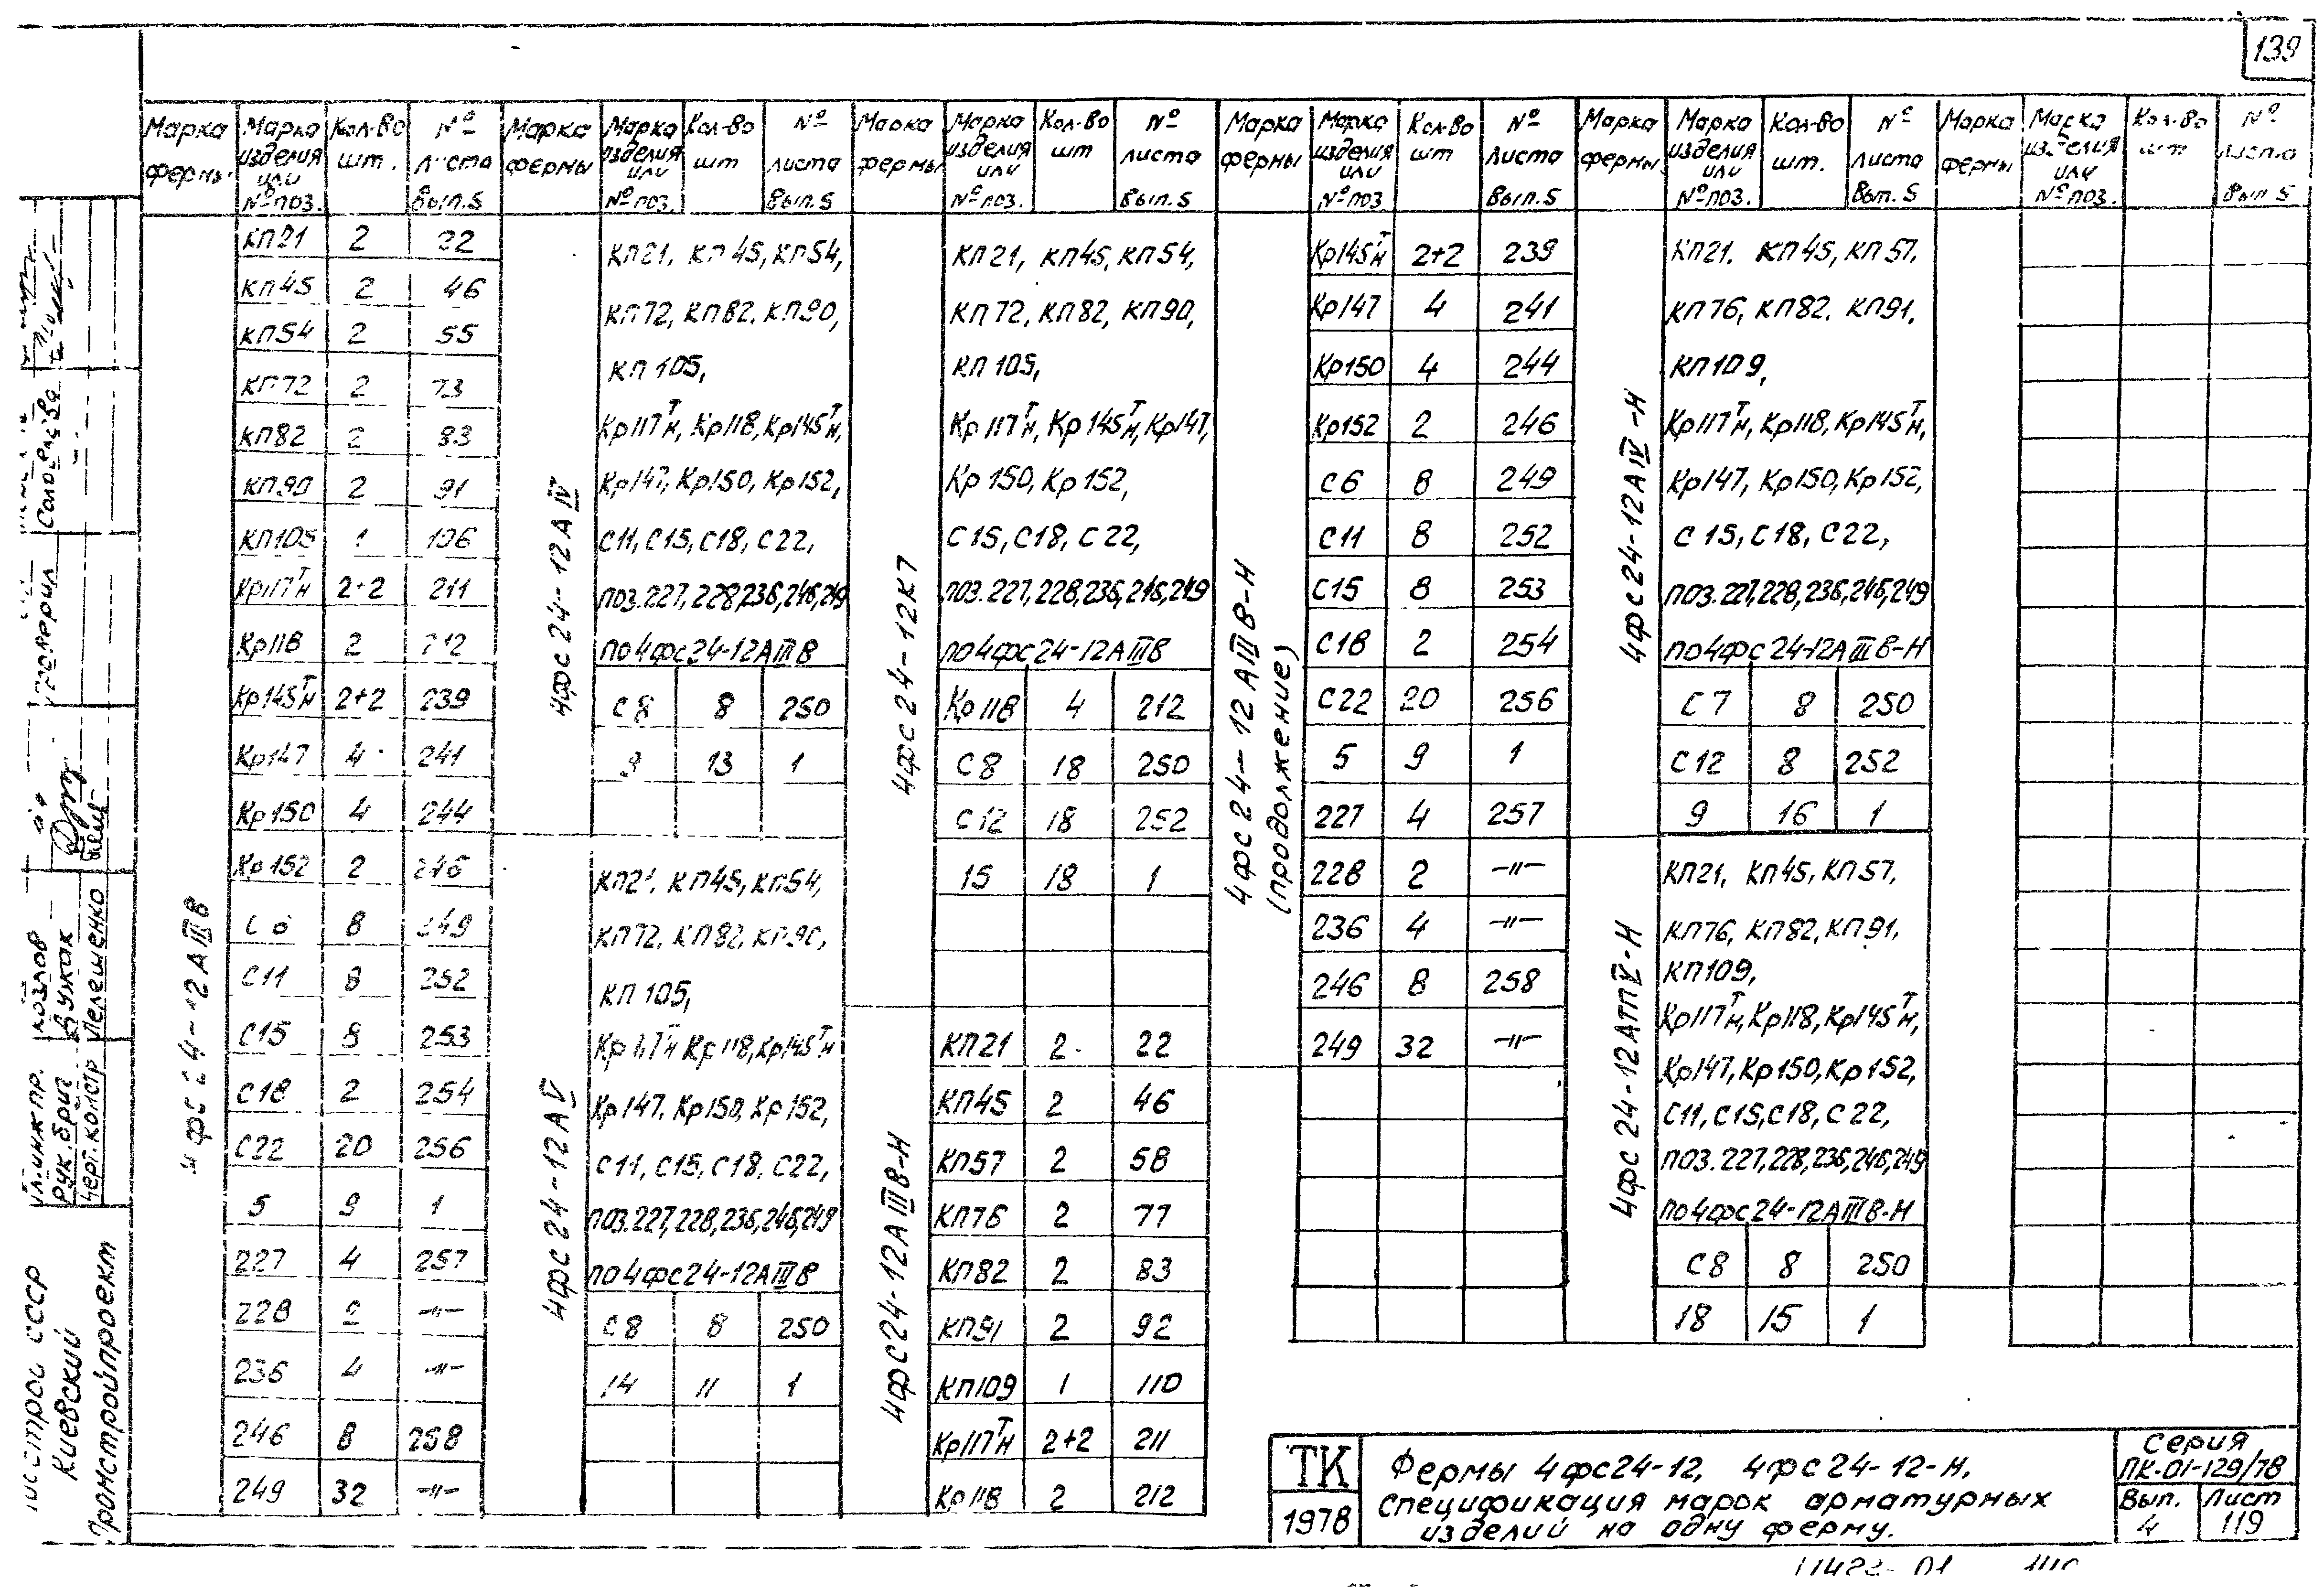 139
Марка фермы | Марка изделия или № поз. | Кол-во шт. | № листа Вып.5
4фс24-12АIIIв
КП21 2 22
КП45 2 46
КП54 2 55
КП72 2 73
КП82 2 83
КП90 2 91
КП105 1 106
Кр117Тн 2+2 211
Кр118 2 212
Кр145Тн 2+2 239
Кр147 4 241
Кр150 4 244
Кр152 2 246
С6 8 249
С11 8 252
С15 8 253
С18 2 254
С22 20 256
5 9 1
227 4 257
228 2 —"—
236 4 —"—
246 8 258
249 32 —"—
Марка фермы | Марка изделия или № поз. | Кол-во шт | № листа Вып.5
4фс24-12АIV
КП21, КП45, КП54,
КП72, КП82, КП90,
КП105,
Кр117Тн, Кр118, Кр145Тн,
Кр147, Кр150, Кр152,
С11, С15, С18, С22,
поз.227, 228, 236, 246, 249
по 4фс24-12АIIIв
С8 8 250
9 13 1
4фс24-12АV
КП21, КП45, КП54,
КП72, КП82, КП90,
КП105,
Кр117Тн Кр118, Кр145Тн
Кр147, Кр150, Кр152,
С11, С15, С18, С22,
поз.227, 228, 236, 246, 249
по 4фс24-12АIIIв
С8 8 250
14 11 1
Марка фермы | Марка изделия или № поз. | Кол-во шт | № листа Вып.5
4фс24-12К7
КП21, КП45, КП54,
КП72, КП82, КП90,
КП105,
Кр117Тн, Кр145Тн, Кр147,
Кр150, Кр152,
С15, С18, С22,
поз.227, 228, 236, 246, 249
по 4фс24-12АIIIв
Кр118 4 212
С8 18 250
С12 18 252
15 18 1
4фс24-12АIIIв-Н
КП21 2 22
КП45 2 46
КП57 2 58
КП76 2 77
КП82 2 83
КП91 2 92
КП109 1 110
Кр117Тн 2+2 211
Кр118 2 212
Марка фермы | Марка изделия или № поз. | Кол-во шт | № листа Вып.5
4фс24-12АIIIв-Н
(продолжение)
Кр145Тн 2+2 239
Кр147 4 241
Кр150 4 244
Кр152 2 246
С6 8 249
С11 8 252
С15 8 253
С18 2 254
С22 20 256
5 9 1
227 4 257
228 2 —"—
236 4 —"—
246 8 258
249 32 —"—
Марка фермы | Марка изделия или № поз. | Кол-во шт. | № листа Вып.5
4фс24-12АIV-Н
КП21, КП45, КП57,
КП76, КП82, КП91,
КП109,
Кр117Тн, Кр118, Кр145Тн,
Кр147, Кр150, Кр152,
С15, С18, С22,
поз.227, 228, 236, 246, 249
по 4фс24-12АIIIв-Н
С7 8 250
С12 8 252
9 16 1
4фс24-12АтпV-Н
КП21, КП45, КП57,
КП76, КП82, КП91,
КП109,
Кр117Тн, Кр118, Кр145Тн,
Кр147, Кр150, Кр152,
С11, С15, С18, С22,
поз.227, 228, 236, 246, 249
по 4фс24-12АIIIв-Н
С8 8 250
18 15 1
Марка фермы | Марка изделия или № поз. | Кол-во шт | № листа Вып 5
Гл.инж пр. Козлов
Рук. бриг Вункак
Черт.констр Лелешенко
СССР
Киевский
Трансстройпроект
ТК
1978
Фермы 4фс24-12, 4фс24-12-Н.
Спецификация марок арматурных
изделий на одну ферму.
Серия
ПК-01-129/78
Вып. 4
Лист 119